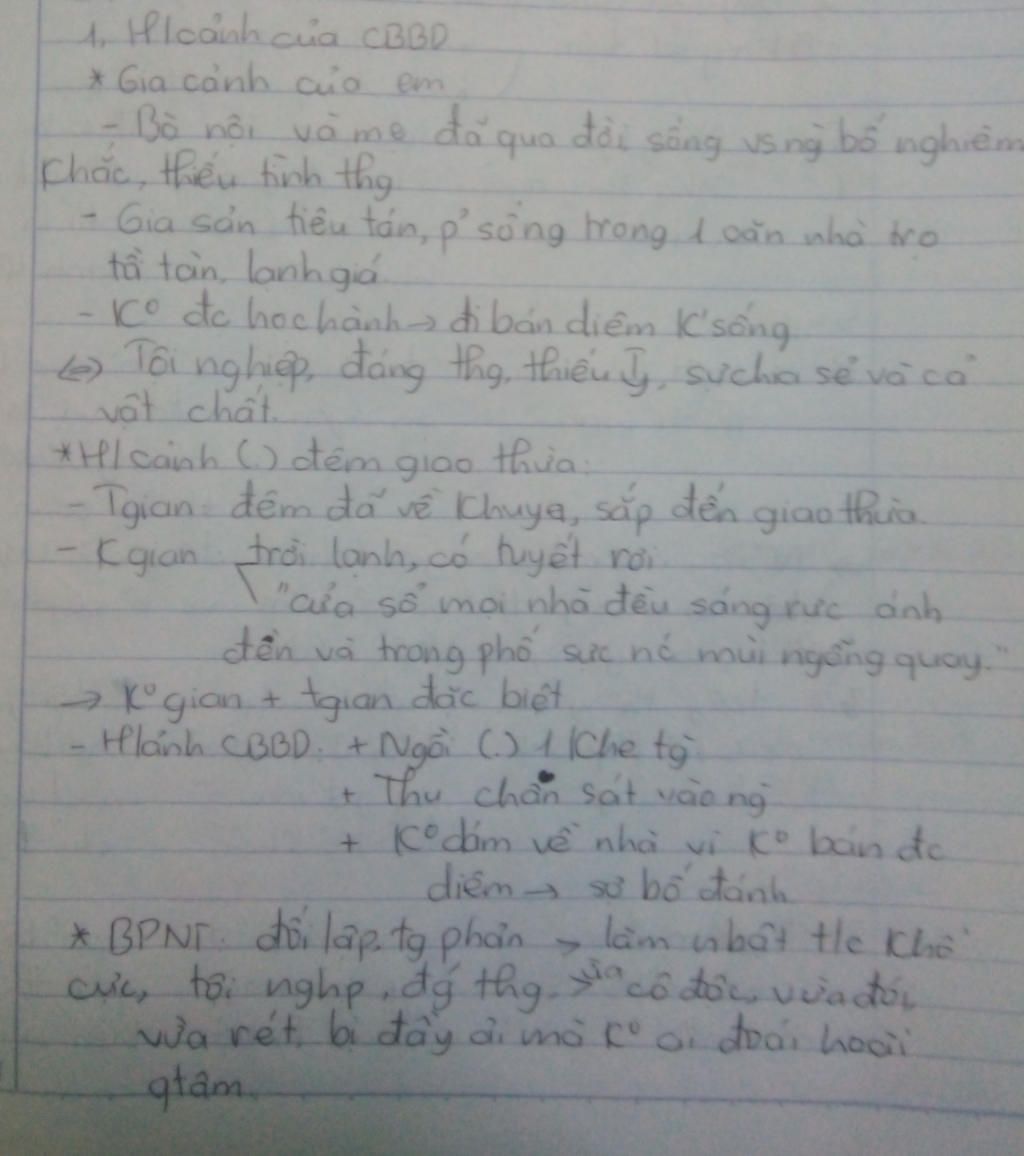 1, H/cảnh của CBBD
* Gia cảnh của em
- Bà nội và mẹ đã qua đời sống vs ng bố nghiêm
khắc, thiếu tình thg
- Gia sản tiêu tán, p' sống trong 1 căn nhà trọ
tồi tàn, lạnh giá
- K° đc học hành → đi bán diêm k' sống
<=> Tội nghiệp, đáng thg, thiếu, sự chia sẻ và cả
vật chất.
* H/cảnh (.) đêm giao thừa:
- Tgian: đêm đã về khuya, sắp đến giao thừa.
- Kgian trời lạnh, có tuyết rơi
"cửa sổ mọi nhà đều sáng rực ánh
đèn và trong phố sực nức mùi ngỗng quay."
→ K° gian + tgian đặc biệt
- H/ảnh CBBD: + Ngồi (.) 1 khe tg
+ Thu chân sát vào ng
+ K° dám về nhà vì k° bán đc
diêm → sợ bố đánh
* BPNT: đối lập, tg phản → làm nbật t/c khổ
cực, tội nghp, đg thg → vừa cô độc, vừa đói,
vừa rét, bị đầy ải mà k° ai đoái hoài
qtâm.